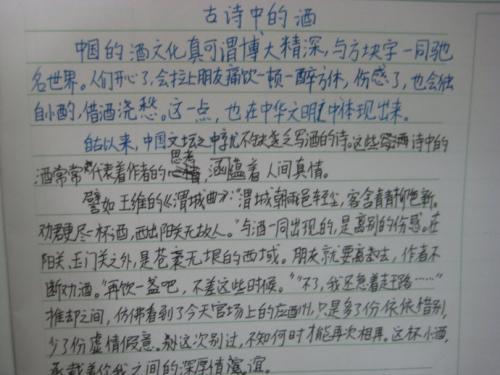 古诗中的酒
中国的酒文化真可谓博大精深,与方块字一同驰
名世界。人们开心了,会拉上朋友痛饮一顿一醉方休,伤感了,也会独
自小酌,借酒浇愁。这一点,也在中华文明之中体现出来。
自古以来,中国文坛之中就不缺乏写酒的诗。这些诗中的
酒常常代表着作者的思考,涵蕴着人间真情。
譬如王维的《渭城曲》:"渭城朝雨浥轻尘,客舍青青柳色新。
劝君更尽一杯酒,西出阳关无故人。"与酒一同出现的,是离别的伤感。在
阳关、玉门关之外,是苍襄无垠的西域。朋友就要离去,作者不
断劝酒。"再饮一盏吧,不差这些时候。""不了,我还急着赶路……"
推却之间,仿佛看到了今天官场上的应酬,只是多了份依依惜别,
少了份虚情假意。别这次别过,不知何时才能再次相再。这杯小酒,
承载着你我之间的深厚情谊。